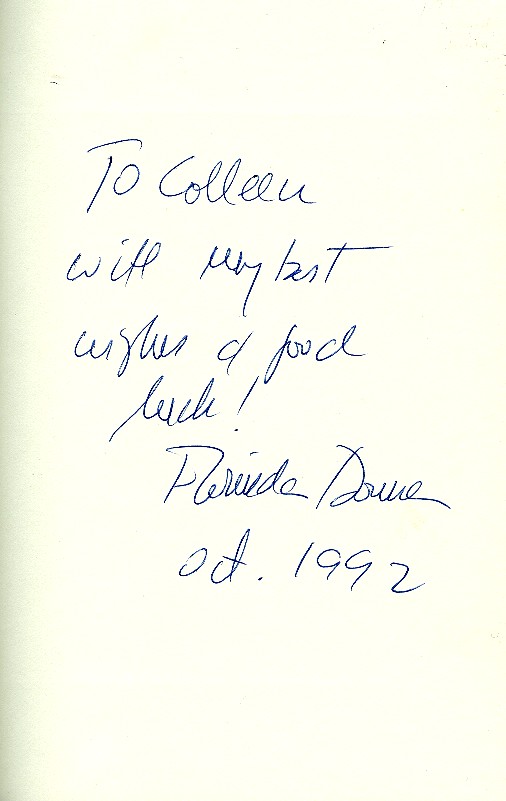 To Colleen
with my best
wishes & good
luck!
Florinda Donner
Oct. 1992